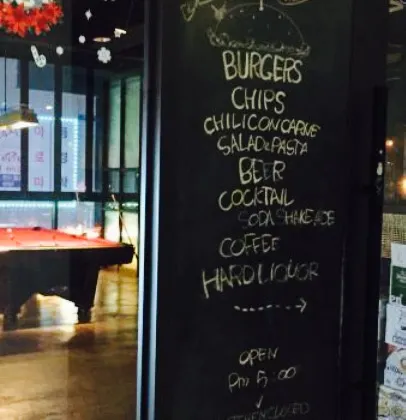 BURGERS
CHIPS
CHILICONCARNE
SALAD&PASTA
BEER
COCKTAIL
SODA SHAKE ADE
COFFEE
HARD LIQUOR
OPEN
PM 5:00